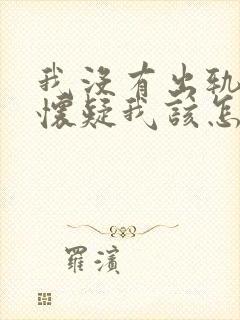 我没有出轨
懷疑我該怎
羅濱